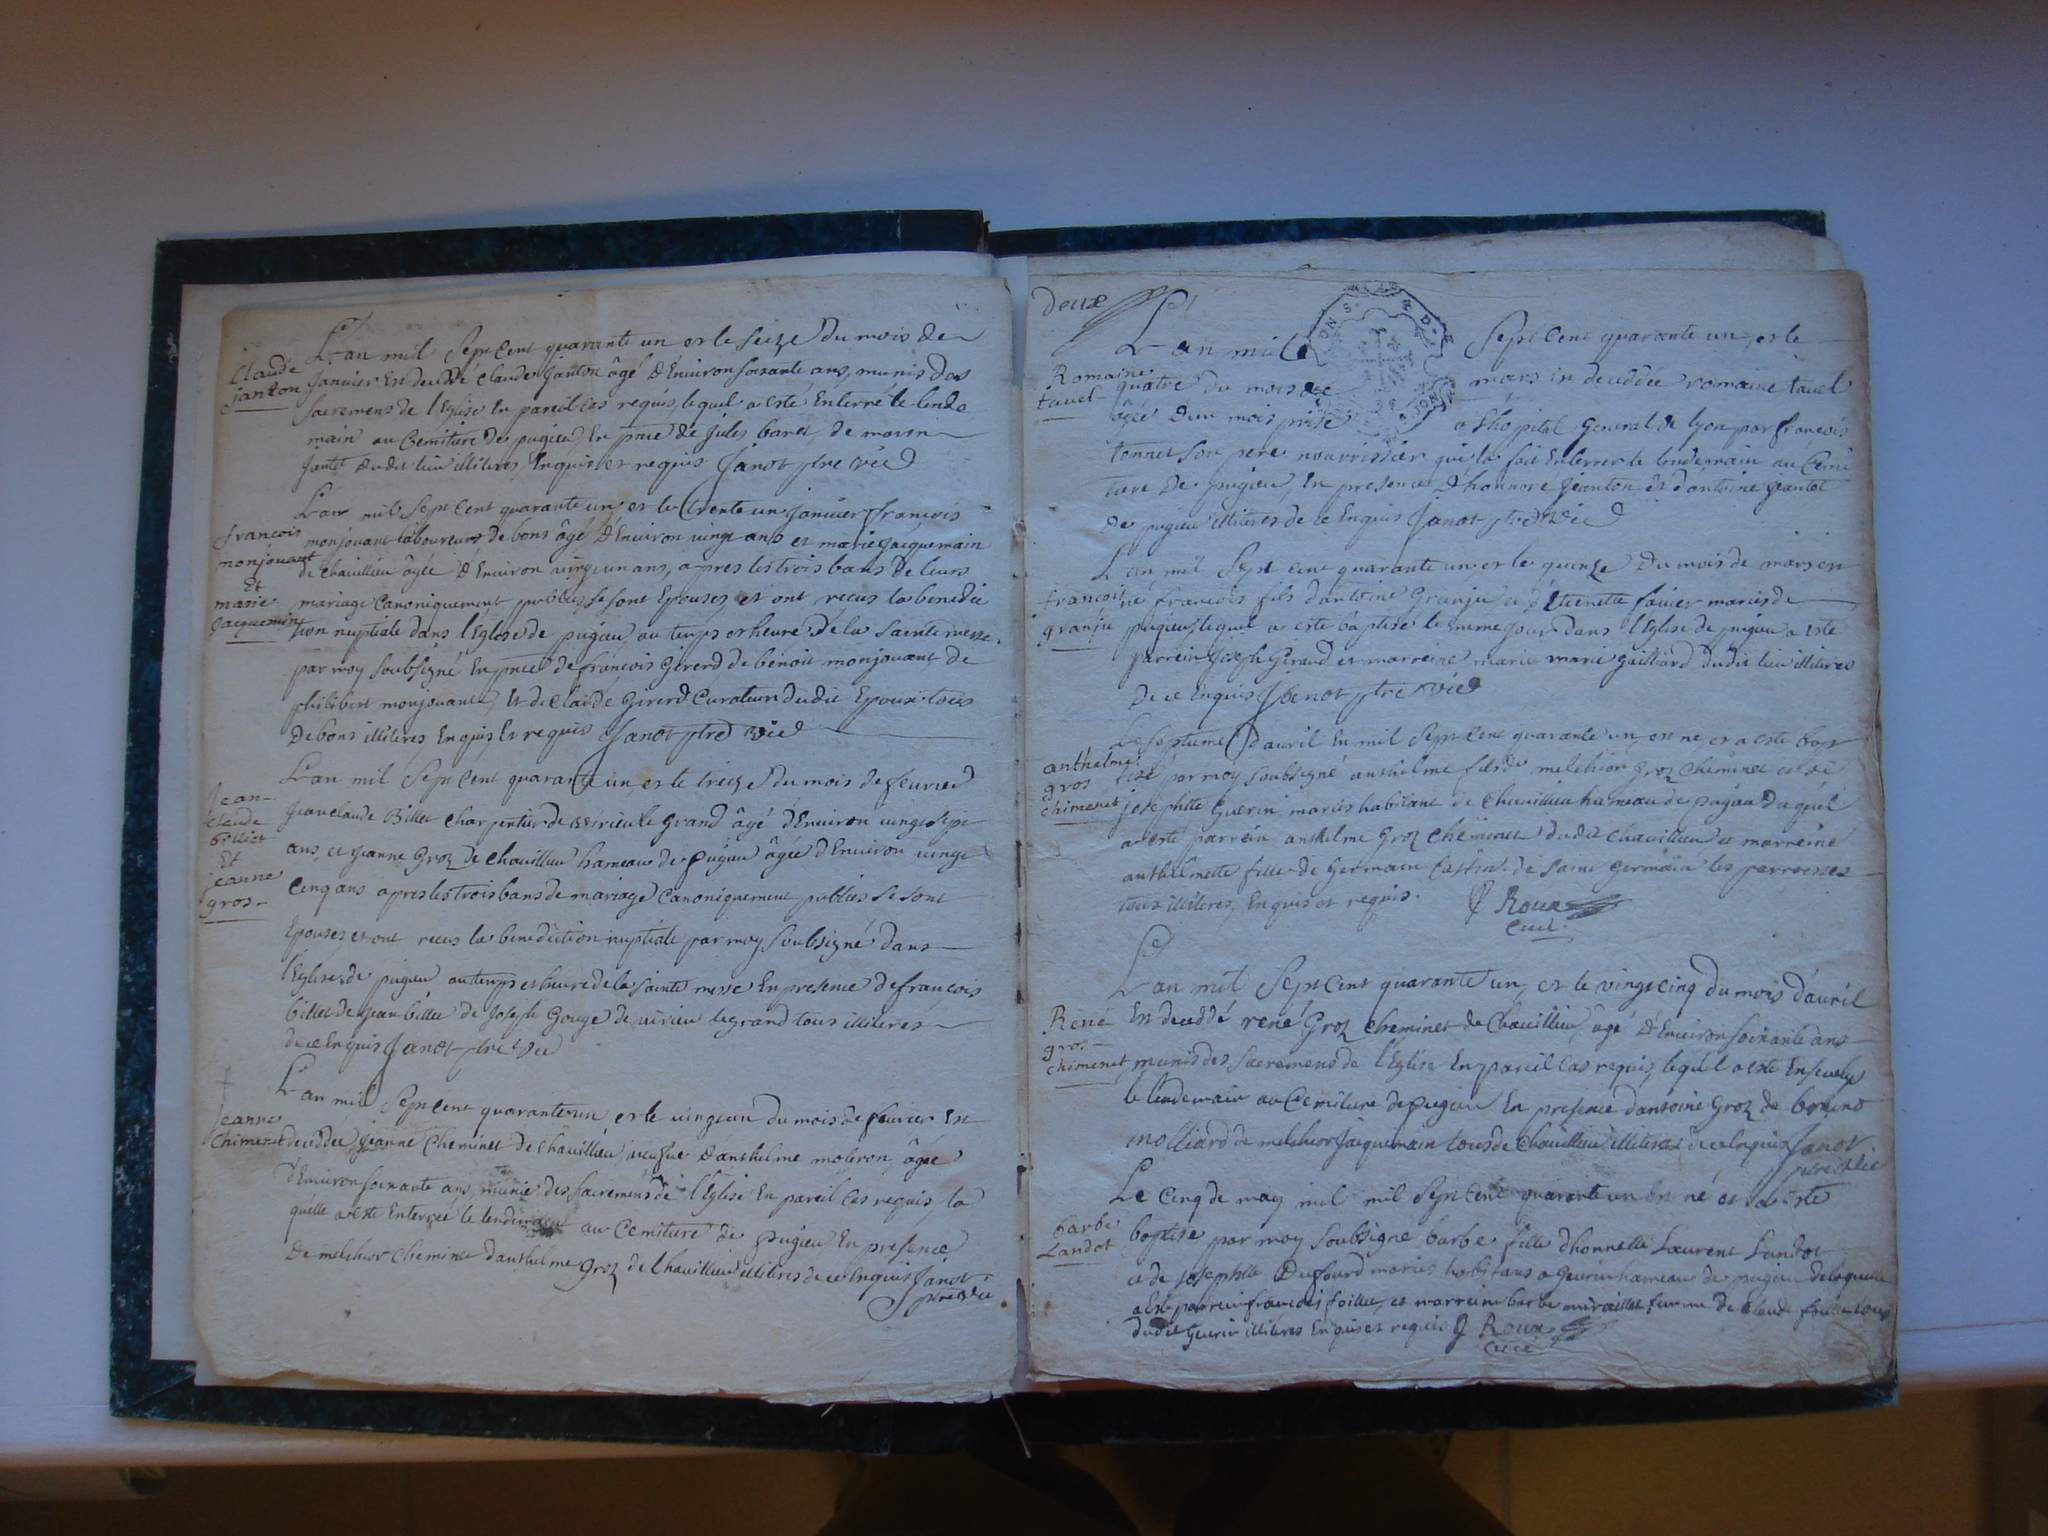 L'an mil Sept Cent quarante un et le Seize du mois de
Claude
Janton
Janvier Est decedé Claude Janton âgé d'Environ soixante ans, munis des
sacremens de l'Eglise En pareil cas requis, lequel a esté Enterré le lende
main au Cemiture de pugieu, En pnce de Jules
dudit lieu illiteres Enquis et requis Janot ptre vic
L'an mil Sept Cent quarante un et le trente un Janvier françois
françois
monjouant
Et
marie
Jacquemin
monjouant laboureur de bons âgé d'Environ vingt ans et marie Jacquemain
de Chavillieu âgée d'Environ vingt un ans, apres les trois bans de leurs
mariage Canoniquement publiés se sont Epousez et ont recus la benedic
tion nuptiale dans l'Eglise de pugieu au temps et heure de la Sainte messe
par moy Soubsigné En pnce de françois Girerd de benoit monjouant de
philibert monjouant, Et de Claude Girerd Curateur dudit Epoux tous
De bons illiteres Enquis Et requis Janot ptre vic
L'an mil Sept Cent quarante un et le treize du mois de fevrier
Jean-
claude
billiet
Et
jeanne
gros-
Jean claude Billet Charpentier de virieu le Grand âgé d'Environ vingt sept
ans, et Jeanne Groz de Chavillieu hameau de Pugieu âgée d'Environ vingt
Cinq ans apres les trois bans de mariage Canoniquement publiés Se sont
Epousez et ont recus la benediction nuptiale par moy Soubsigné dans
l'Eglise de pugieu au temps et heure de la Sainte messe En presence de françois
billet de Jean billet de Joseph Gouge de virieu le grand tous illiteres
de ce Enquis Janot ptre vic
L'an mil Sept Cent quarante un et le vingt un du mois de fevrier Est
Jeanne
Chimenet
decedée Jeanne Cheminet de Chavillieu veufve d'anthelme moleron âgée
d'Environ soixante ans munie des Sacremens de l'Eglise En pareil Cas requis la
quelle a esté Enterrée le lendemain au Cemiture de pugieu En presence
De melchior Cheminet d'anthelme Groz de Chavillieu illiteres de ce Enquis Janot
ptre vic
Deux
L'an mil Sept Cent quarante un, et le
Romaine
tavel
quatre du mois de mars Est decedée romaine tavel
âgée d'un mois prise a L'hopital General de lyon par françois
tonnet Son pere nourrissier qui la fait Enterrer le lendemain au Cemi
ture De Pugieu, En presence d'honnore Jeanton et d'antoine Jeantet
De pugieu illiteres de ce Enquis Janot ptre vic
L'an mil Sept cent quarante un et le quinze Du mois de mars est
francois
granju
né francois fils d'antoine Granju et d'Etienette favier mariés de
pugieu, lequel a esté baptisé le meme jour dans l'Eglise de pugieu a esté
parrein Joseph Giraud et marreine marie marie gaillard dudit lieu illiteres
De ce Enquis Janot ptre vic
Le Septieme d'avril En mil Sept Cent quarante un est né, et a esté bap
anthelme
gros
chimenet
tisé par moy soubsigné anthelme fils de melchior Groz Cheminet et de
josephte Guerin mariés habitant de Chavillieu hameau de pugieu duquel
a esté parrein anthelme Groz Cheminet dudit Chavillieu et marreine
anthelmette fille de Germain Castin de Saint Germain les parroisses
tous illiteres, Enquis et requis. J Roux
Curé
L'an mil Sept Cent quarante un, et le vingt cinq du mois d'avril
Réné
gros-
chimenet
Est decedé rené Groz Cheminet de Chavillieu, âgé d'Environ soixante ans
munis des Sacremens de l'Eglise En pareil Cas requis, lequel a esté Ensevely
le lendemain au Cemiture de pugieu En presence d'antoine Groz de bruno
molliard de melchior Jacquemain tous de Chavillieu illiteres de ce Enquis Janot
ptre vic
Le Cinq de may mil mil Sept Cent quarante un Est né et a Esté
barbe
Landot
baptisé par moy Soubsigné barbe fille d'honnette Laurent Landot
et de josephte Dufourd mariés habitans a Geurin hameau de pugieu de laquelle
a Esté parrein francois foillet, et marreine barbe miraillet femme de Claude foillet tous
dudit Geurin illiteres Enquis et requis J Roux
Curé